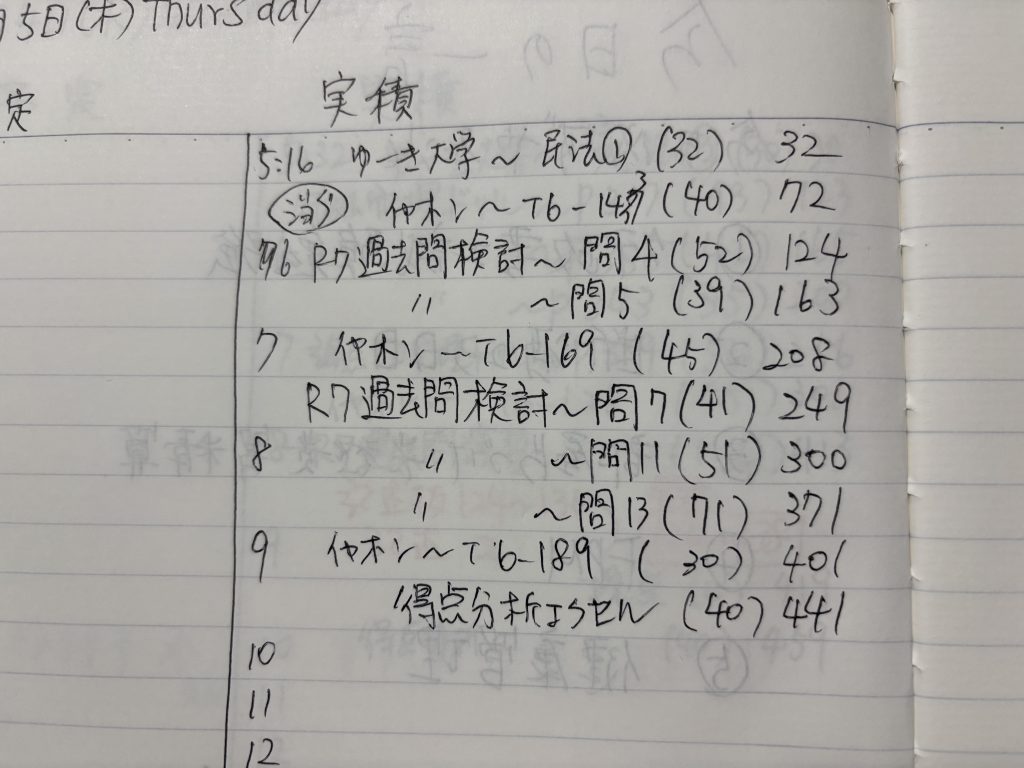 月5日(木) Thursday
定 実積
5:16 ゆーき大学〜民法① (32) 32
イヤホン〜T6-143 (40) 72
6 R7過去問検討〜問4 (52) 124
〃 〜問5 (39) 163
7 イヤホン〜T6-169 (45) 208
R7過去問検討〜問7 (41) 249
8 〃 〜問11 (51) 300
〃 〜問13 (71) 371
9 イヤホン〜T6-189 (30) 401
得点分析エクセル (40) 441
10
11
12